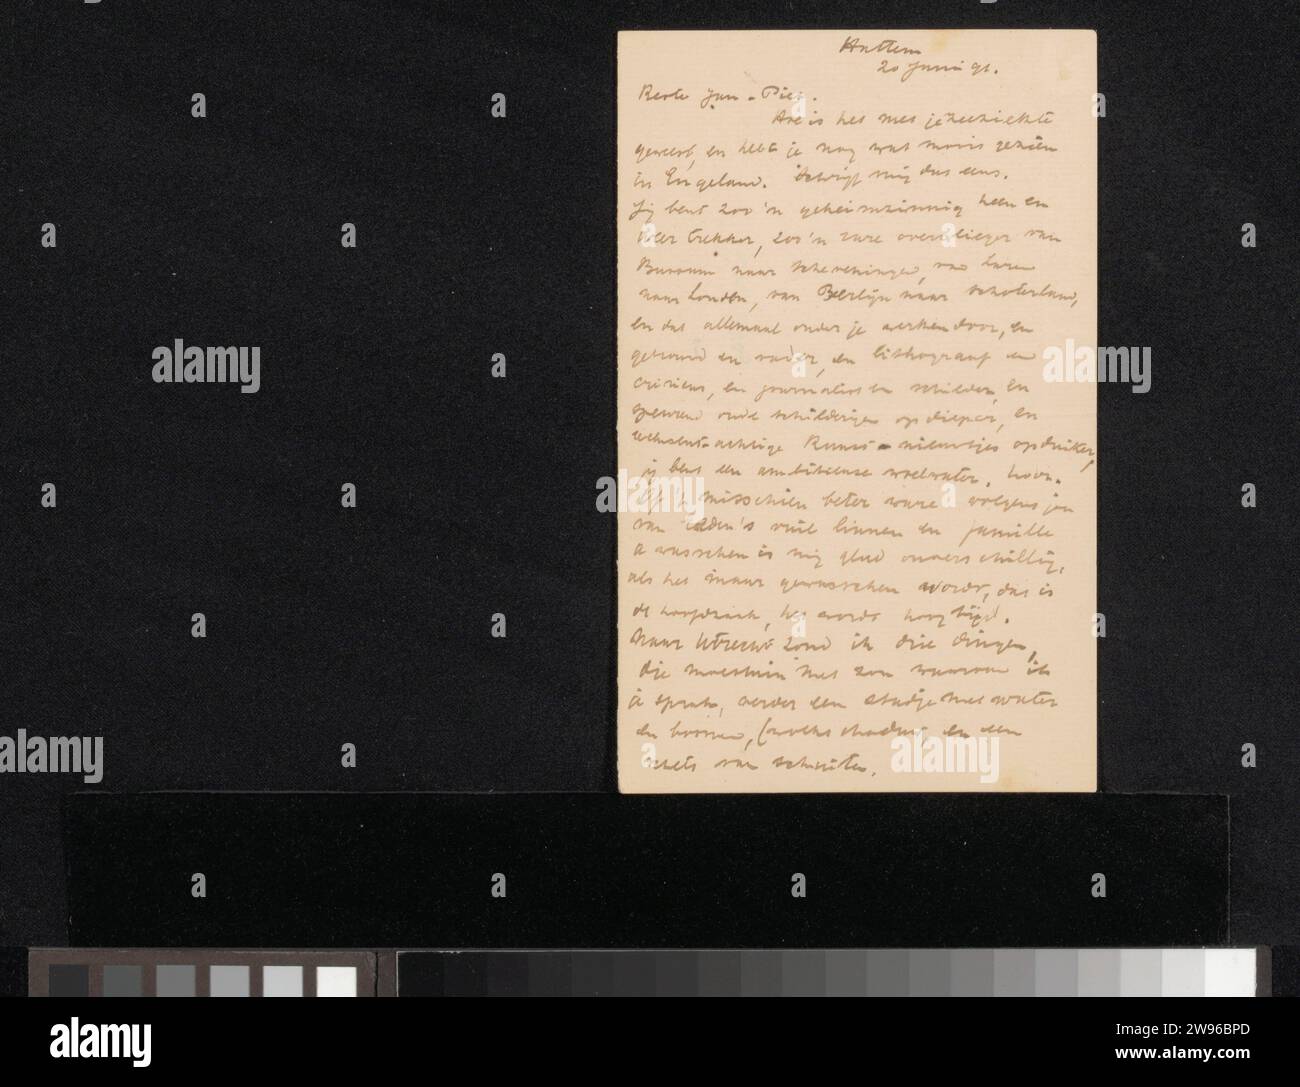 Hattem
20 Juni 91.
Beste Jan-Piet.
Hoe is het met je
geweest, en hebt je nog wat moois gezien
in Engeland. Schrijf mij dat eens.
Jij bent zoo'n geheimzinnig heen en
weer trekker, zoo'n rare overvlieger van
Bussum naar Scheveningen, van Laren
naar Londen, van Berlijn naar Schoterland,
en dat allemaal onder je werken door, en
getrouwd en vader, en lithograaf en
criticus, en journalist en schilder, en
oude schilderijen opdieper, en
achtige Kunst-nieuwtjes opduiker,
jij bent een ambitieuse waschvrouw.
Of 'n misschien beter ware volgens jou
van Eeden's vuil linnen en famille
te wasschen is mij glad onverschillig,
als het maar gewasschen wordt, dat is
de hoofdzaak, het wordt hoog tijd.
Naar Utrecht zond ik drie dingen,
die moestuin met zon waarvan ik
je sprak, verder een stadje met water
en boomen, ( en een
schets van schuiten.
alamy
a
Image ID: 2W96BPD
www.alamy.com